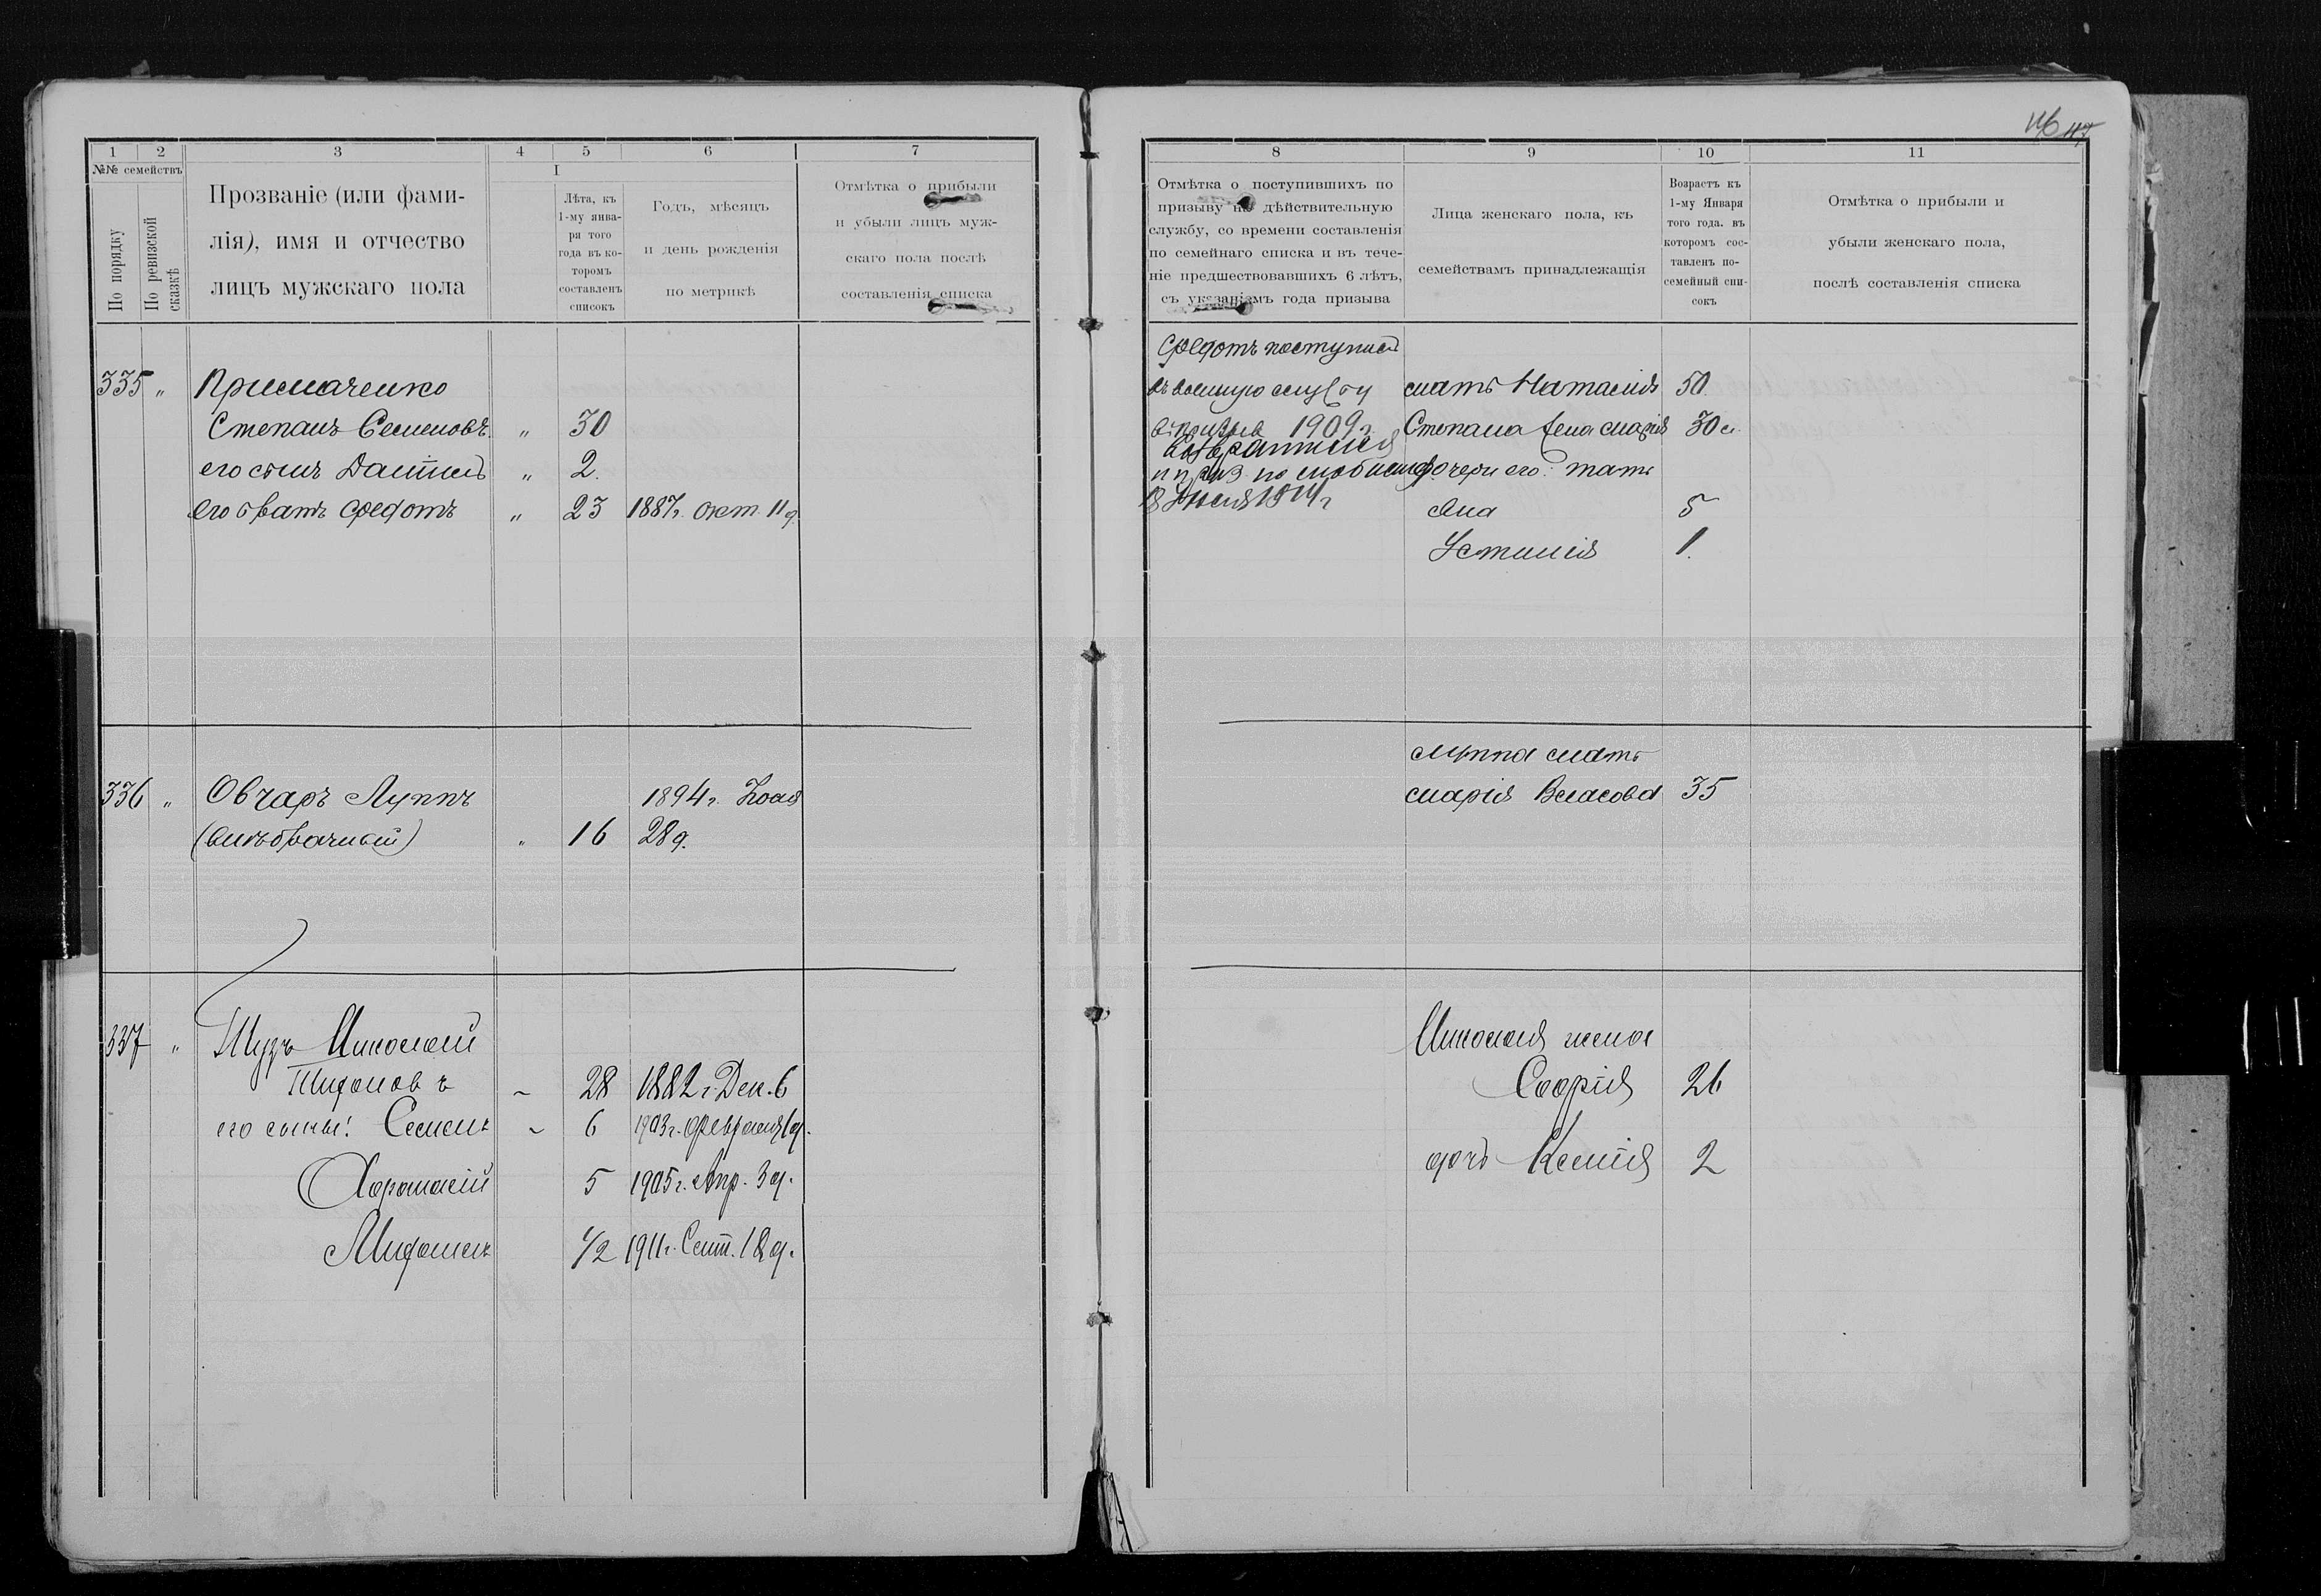 146 147
1 2 3 4 5 6 7
№№ семействъ
По порядку
По ревизской сказкѣ
Прозваніе (или фами-
лія), имя и отчество
лицъ мужскаго пола
I
Лѣта, къ
1-му янва-
ря того
года въ ко-
торомъ
составленъ
списокъ
Годъ, мѣсяцъ
и день рожденія
по метрикѣ
Отмѣтка о прибыли
и убыли лицъ муж-
скаго пола послѣ
составленія списка
335 " Примаченко
Степанъ Семеновъ " 30
его сынъ Даніилъ " 2.
его братъ Федотъ " 23 1887г. Окт. 11 д.
336 " Овчаръ Луппъ 1894г. Ноя
(внѣбрачный) " 16 28 д.
337 " Николай
28 1882 г. Дек. 6
его сыны: Семенъ 6 1903г. Февраля 1 д.
Афанасій 5 1905г. Апр. 3 д.
1/2 1911г. Сент. 18 д.
8 9 10 11
Отмѣтка о поступившихъ по
призыву на дѣйствительную
службу, со времени составленія
по семейнаго списка и въ тече-
ніе предшествовавшихъ 6 лѣтъ,
съ указаніемъ года призыва
Лица женскаго пола, къ
семействамъ принадлежащія
Возрастъ къ
1-му Января
того года. въ
которомъ сос-
тавленъ по-
семейный спи-
сокъ
Отмѣтка о прибыли и
убыли женскаго пола,
послѣ составленія списка
Федотъ поступилъ
въ военную службу
въ призывъ 1909г.
возвратился
призв. по мобилиз.
18 Іюля 1914г
мать Наталія 50
Степана жена Марія 30
дочери его: Таті
яна 5
Устинія 1.
Луппа мать
Марія Власова 35
Николая жена
Софія 26
дочь Ксенія 2